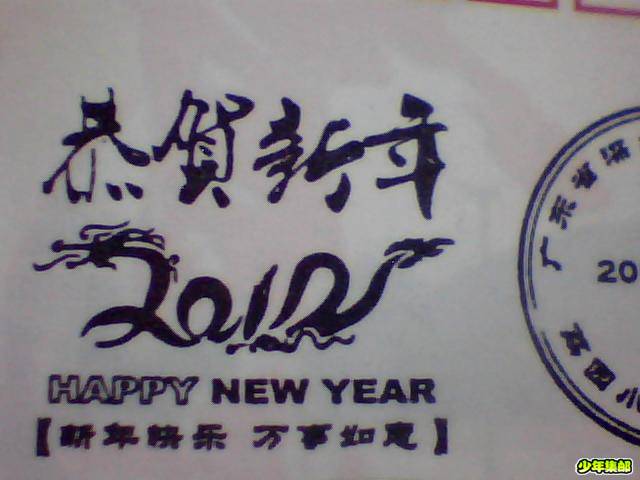 恭賀新年
2012
HAPPY NEW YEAR
【新年快乐 万事如意】
广东省
20
少年集邮